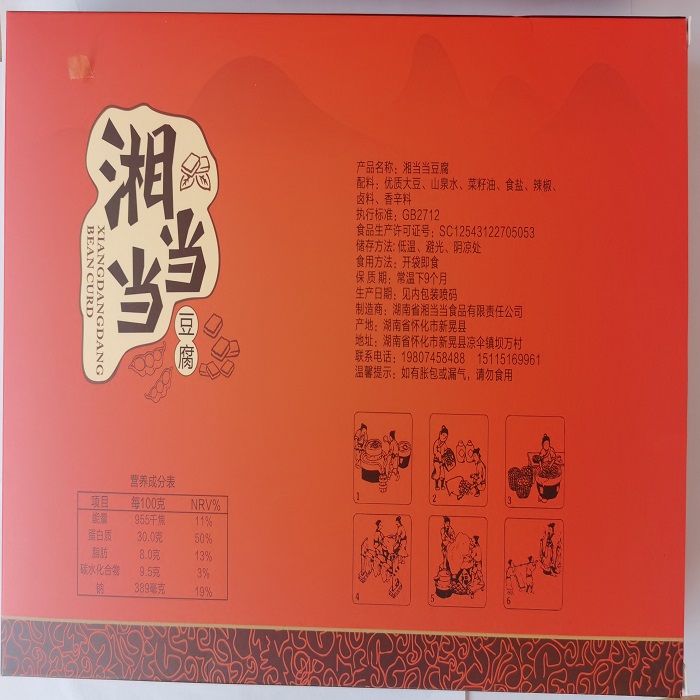 湘当当
XIANGDANGDANG
BEAN CURD
豆腐
产品名称：湘当当豆腐
配料：优质大豆、山泉水、菜籽油、食盐、辣椒、
卤料、香辛料
执行标准：GB2712
食品生产许可证号：SC12543122705053
储存方法：低温、避光、阴凉处
食用方法：开袋即食
保 质 期：常温下9个月
生产日期：见内包装喷码
制造商：湖南省湘当当食品有限责任公司
产地：湖南省怀化市新晃县
地址：湖南省怀化市新晃县凉伞镇坝万村
联系电话：19807458488 15115169961
温馨提示：如有胀包或漏气，请勿食用
营养成分表
项目 每100克 NRV%
能量 955千焦 11%
蛋白质 30.0克 50%
脂肪 8.0克 13%
碳水化合物 9.5克 3%
钠 389毫克 19%
1
2
3
4
5
6